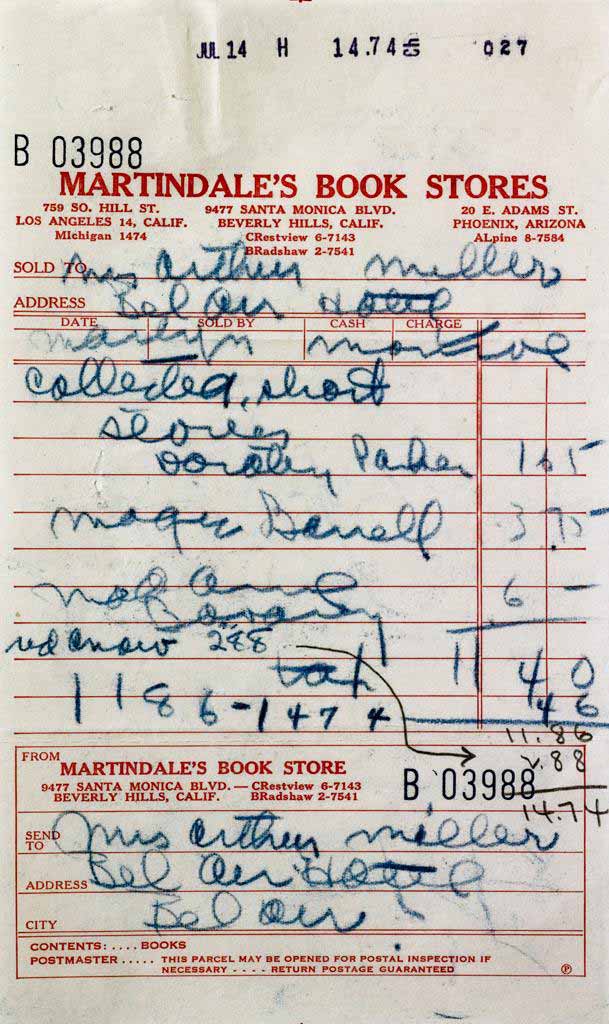 JUL 14 H 14.74 027
B 03988
MARTINDALE'S BOOK STORES
759 SO. HILL ST. 9477 SANTA MONICA BLVD. 20 E. ADAMS ST.
LOS ANGELES 14, CALIF. BEVERLY HILLS, CALIF. PHOENIX, ARIZONA
MIchigan 1474 CRestview 6-7143 ALpine 8-7584
BRadshaw 2-7541
SOLD TO Mrs Arthur Miller
ADDRESS Bel Air Hotel
DATE SOLD BY CASH CHARGE
Marilyn Monroe
collected short
stories
Dorothy Parker 165
Magic Barrell 3 75
6 -
288
tax 11 40
46
1186-1474
11.86
2.88
14.74
FROM
MARTINDALE'S BOOK STORE
9477 SANTA MONICA BLVD. — CRestview 6-7143
BEVERLY HILLS, CALIF. BRadshaw 2-7541
B 03988
SEND TO Mrs Arthur Miller
ADDRESS Bel Air Hotel
CITY Bel Air
CONTENTS: .... BOOKS
POSTMASTER ..... THIS PARCEL MAY BE OPENED FOR POSTAL INSPECTION IF
NECESSARY - - - - RETURN POSTAGE GUARANTEED